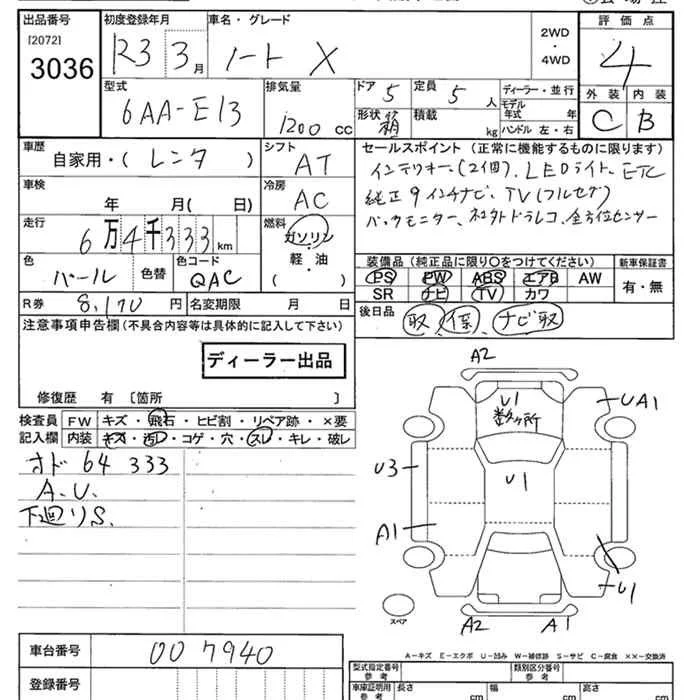 出品番号 初度登録年月 車名・グレード 2WD・4WD 評価点
[2072] 3036 R3 3月 ノート X 4
型式 排気量 ドア 5 定員 5人 ディーラー・並行 外装 内装
6AA-E13 1200 cc 形状 箱 積載 kg モデル年式 年 ハンドル 左・右 C B
車歴 自家用・( レンタ ) シフト AT セールスポイント (正常に機能するものに限ります)
インテリキー、(2個)、LEDライト、ETC
車検 年 月( 日) 冷房 AC 純正9インチナビ、TV(フルセグ)
走行 6万4千333km 燃料 ガソリン バックモニター、社外ドラレコ、全方位センサー
軽・油
( )
色 パール 色替 色コード QAC 装備品 (純正品に限り〇をつけてください) 新車保証書
PS PW ABS エアB AW 有・無
SR ナビ TV カワ
R券 8,170円 名変期限 月 日 後日品 取 保 ナビ取
注意事項申告欄 (不具合内容等は具体的に記入して下さい)
ディーラー出品
修復歴 有 〔箇所 〕
検査員 FW キズ・飛石・ヒビ割・リペア跡・×要
記入欄 内装 キズ・汚レ・コゲ・穴・スレ・キレ・破レ
オド 64 333
A.U.
下廻りS.
A2
U1 数ヶ所
UA1
U3
U1
A1
U1
スペア
A2 A1
A-キズ E-エクボ U-凹み W-補修跡 S-サビ C-腐食 ××-交換済
車台番号 007940
登録番号
型式指定番号 参考 類別区分番号 参考
車庫証明用 参考 長さ cm 幅 cm 高さ cm